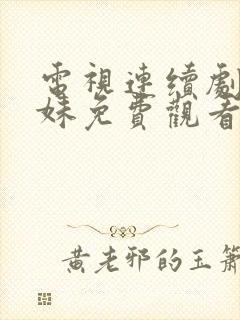 電視連續劇
妹免費觀看
黄老邪的玉簫